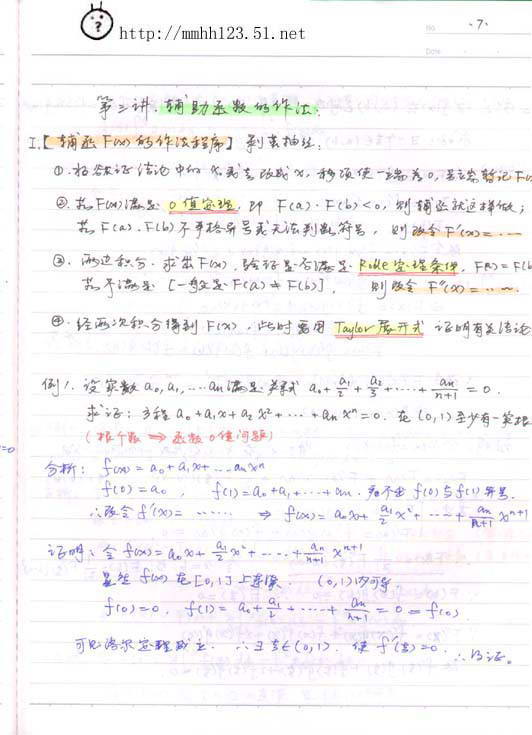 http://mmhh123.51.net
No. ·7·
Date
第三讲. 辅助函数的作法.
I.【辅函F(x)的作法程序】剥茧抽丝:
①. 把欲证结论中的 ξ 或 改成 x, 移项使一端为0, 另一端 暂记F(x
②. 若F(x)满足 0值定理, 即 F(a)·F(b)<0, 则辅函就这样做;
若F(a)·F(b)不严格异号或无法判断符号, 则改令F'(x)=……
③. 两边积分. 求出F(x), 验证是否满足 Rolle定理条件, F(a)=F(b
若不满足 [一般是F(a)≠F(b)], 则改令 F''(x)=……
④. 经两次积分得到F(x), 此时需用 Taylor展开式 证明有关结论
例1. 设实数 a₀,a₁,…aₙ满足关系式 a₀+a₁/2+a₂/3+……+aₙ/(n+1)=0.
求证: 方程 a₀+a₁x+a₂x²+…+aₙxⁿ=0. 在(0,1)至少有一实根
(根个数 ⇒ 函数0值问题)
分析: f(x)=a₀+a₁x+…aₙxⁿ
f(0)=a₀, f(1)=a₀+a₁+……+aₙ. f(0)与f(1)异号.
∴改令f'(x)=…… ⇒ f(x)=a₀x+a₁/2 x²+……+aₙ/(n+1) xⁿ⁺¹
证明: 令f(x)=a₀x+a₁/2 x²+……+aₙ/(n+1) xⁿ⁺¹
显然f(x)在[0,1]上连续. (0,1)内可导.
f(0)=0. f(1)=a₀+a₁/2+……+aₙ/(n+1)=0=f(0)
可见洛尔定理成立. ∴∃ξ∈(0,1). 使f'(ξ)=0. ∴得证.